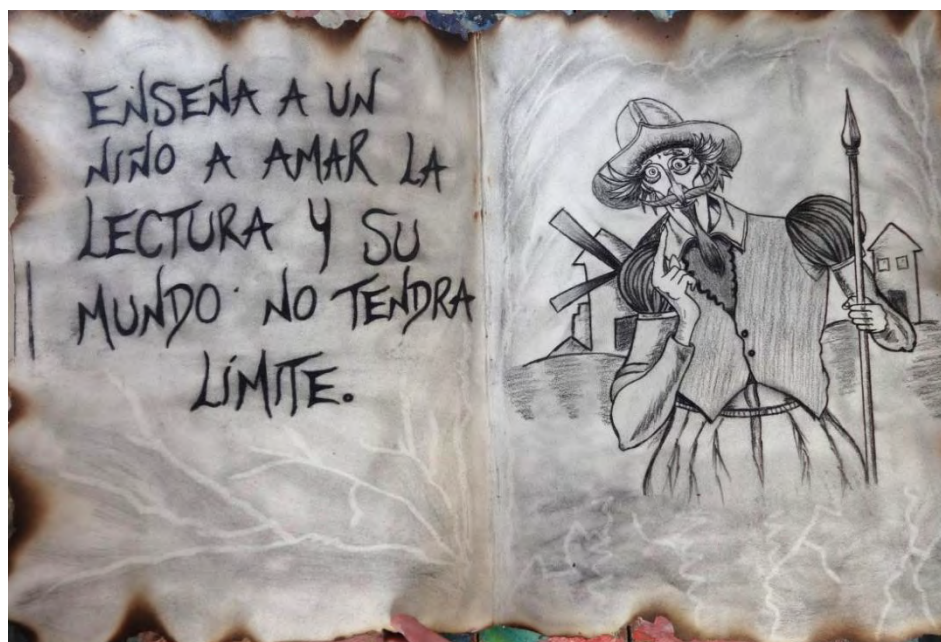 ENSEÑA A UN
NIÑO A AMAR LA
LECTURA Y SU
MUNDO NO TENDRA
LÍMITE.